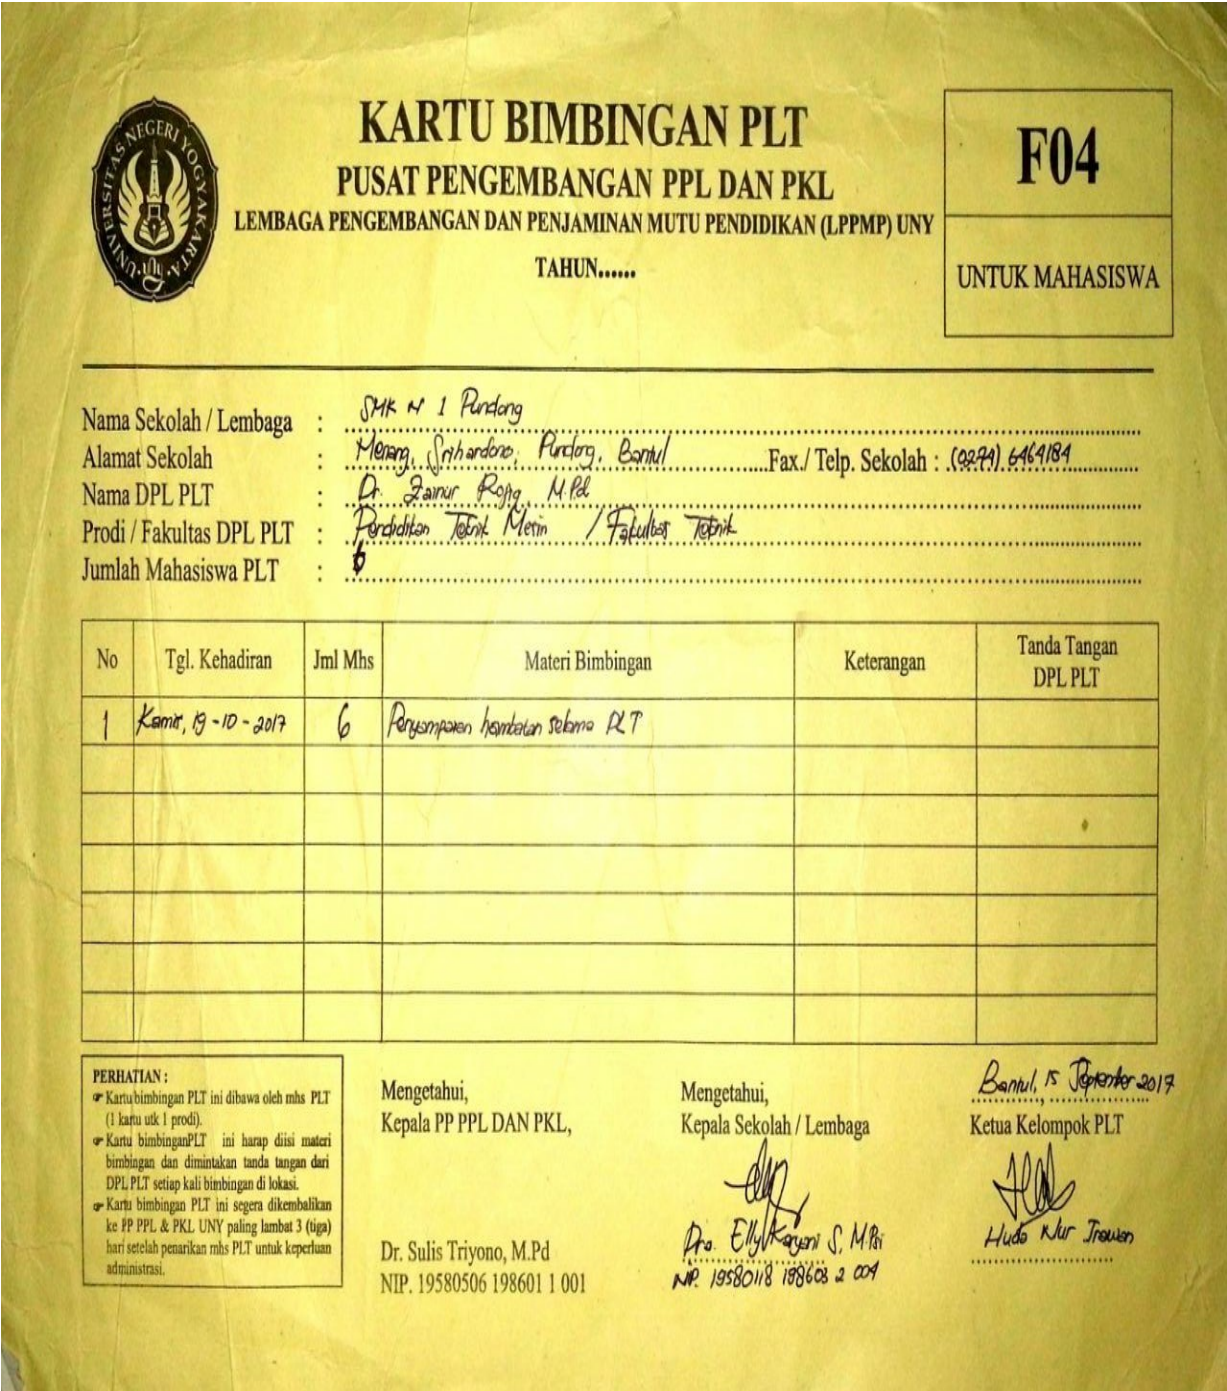 KARTU BIMBINGAN PLT
PUSAT PENGEMBANGAN PPL DAN PKL
LEMBAGA PENGEMBANGAN DAN PENJAMINAN MUTU PENDIDIKAN (LPPMP) UNY
TAHUN......
F04
UNTUK MAHASISWA
UNIVERSITAS NEGERI YOGYAKARTA
Nama Sekolah / Lembaga : SMK N 1 Pundong
Alamat Sekolah : Menang, Srihardono, Pundong, Bantul Fax./ Telp. Sekolah : (0274) 6464184
Nama DPL PLT : Dr. Zainur Rofiq, M.Pd
Prodi / Fakultas DPL PLT : Pendidikan Teknik Mesin / Fakultas Teknik
Jumlah Mahasiswa PLT : 6
No Tgl. Kehadiran Jml Mhs Materi Bimbingan Keterangan Tanda Tangan
DPL PLT
1 Kamis, 19-10-2017 6 Penyampaian hambatan selama PLT
PERHATIAN :
☞ Kartu bimbingan PLT ini dibawa oleh mhs PLT
(1 kartu utk 1 prodi).
☞ Kartu bimbinganPLT ini harap diisi materi
bimbingan dan dimintakan tanda tangan dari
DPL PLT setiap kali bimbingan di lokasi.
☞ Kartu bimbingan PLT ini segera dikembalikan
ke PP PPL & PKL UNY paling lambat 3 (tiga)
hari setelah penarikan mhs PLT untuk keperluan
administrasi.
Mengetahui,
Kepala PP PPL DAN PKL,
Dr. Sulis Triyono, M.Pd
NIP. 19580506 198601 1 001
Mengetahui,
Kepala Sekolah / Lembaga
Dra. Elly Karyani S, M.Psi
NIP. 19580118 198603 2 004
Bantul, 15 September 2017
Ketua Kelompok PLT
Huda Nur Irawan